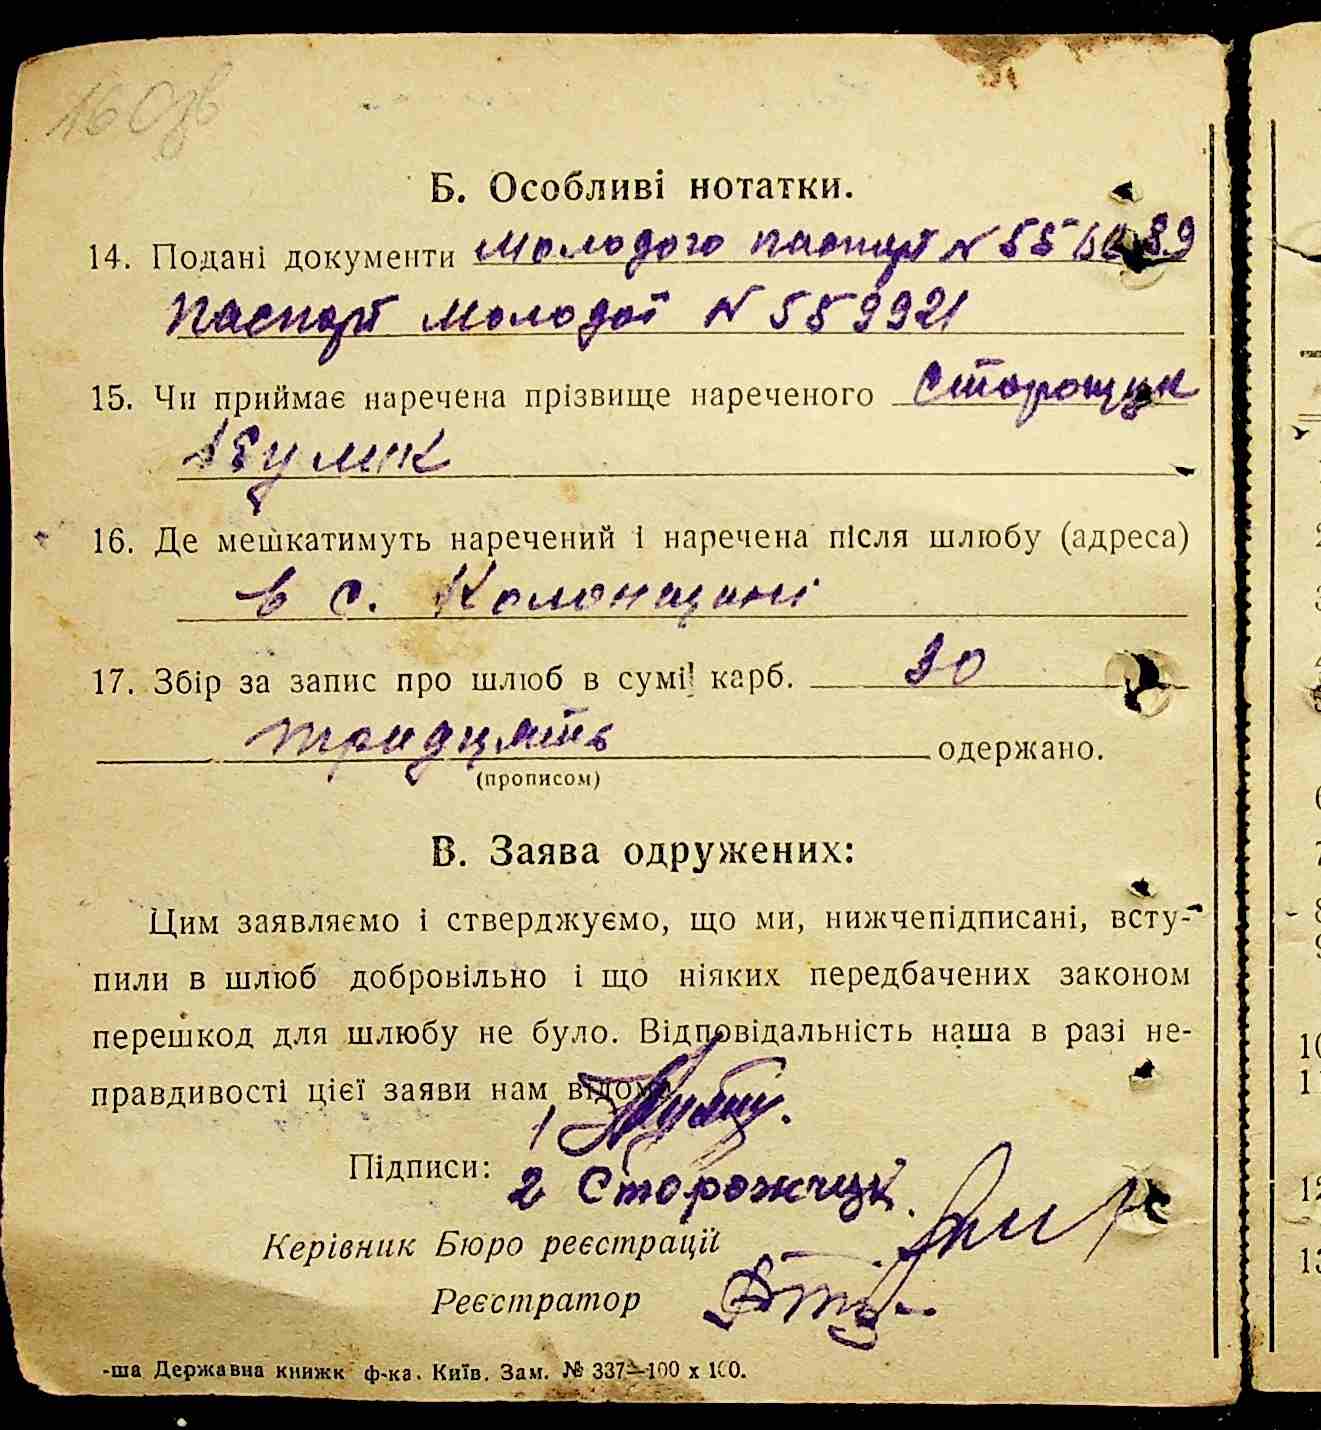 Б. Особливі нотатки.
14. Подані документи Молодого паспорт N 55
Паспорт Молодої N 559921
15. Чи приймає наречена прізвище нареченого Сторощук
Кулик
16. Де мешкатимуть наречений і наречена після шлюбу (адреса)
в с. Колонщині
17. Збір за запис про шлюб в сумі карб. 30
тридцять одержано.
(прописом)
В. Заява одружених:
Цим заявляємо і стверджуємо, що ми, нижчепідписані, всту-
пили в шлюб добровільно і що ніяких передбачених законом
перешкод для шлюбу не було. Відповідальність наша в разі не-
правдивості цієї заяви нам відома
1
Підписи: 2 Сторожчук.
Керівник Бюро реєстрації
Реєстратор
-ша Державна книжк ф-ка. Київ. Зам. № 337—100 х 100.